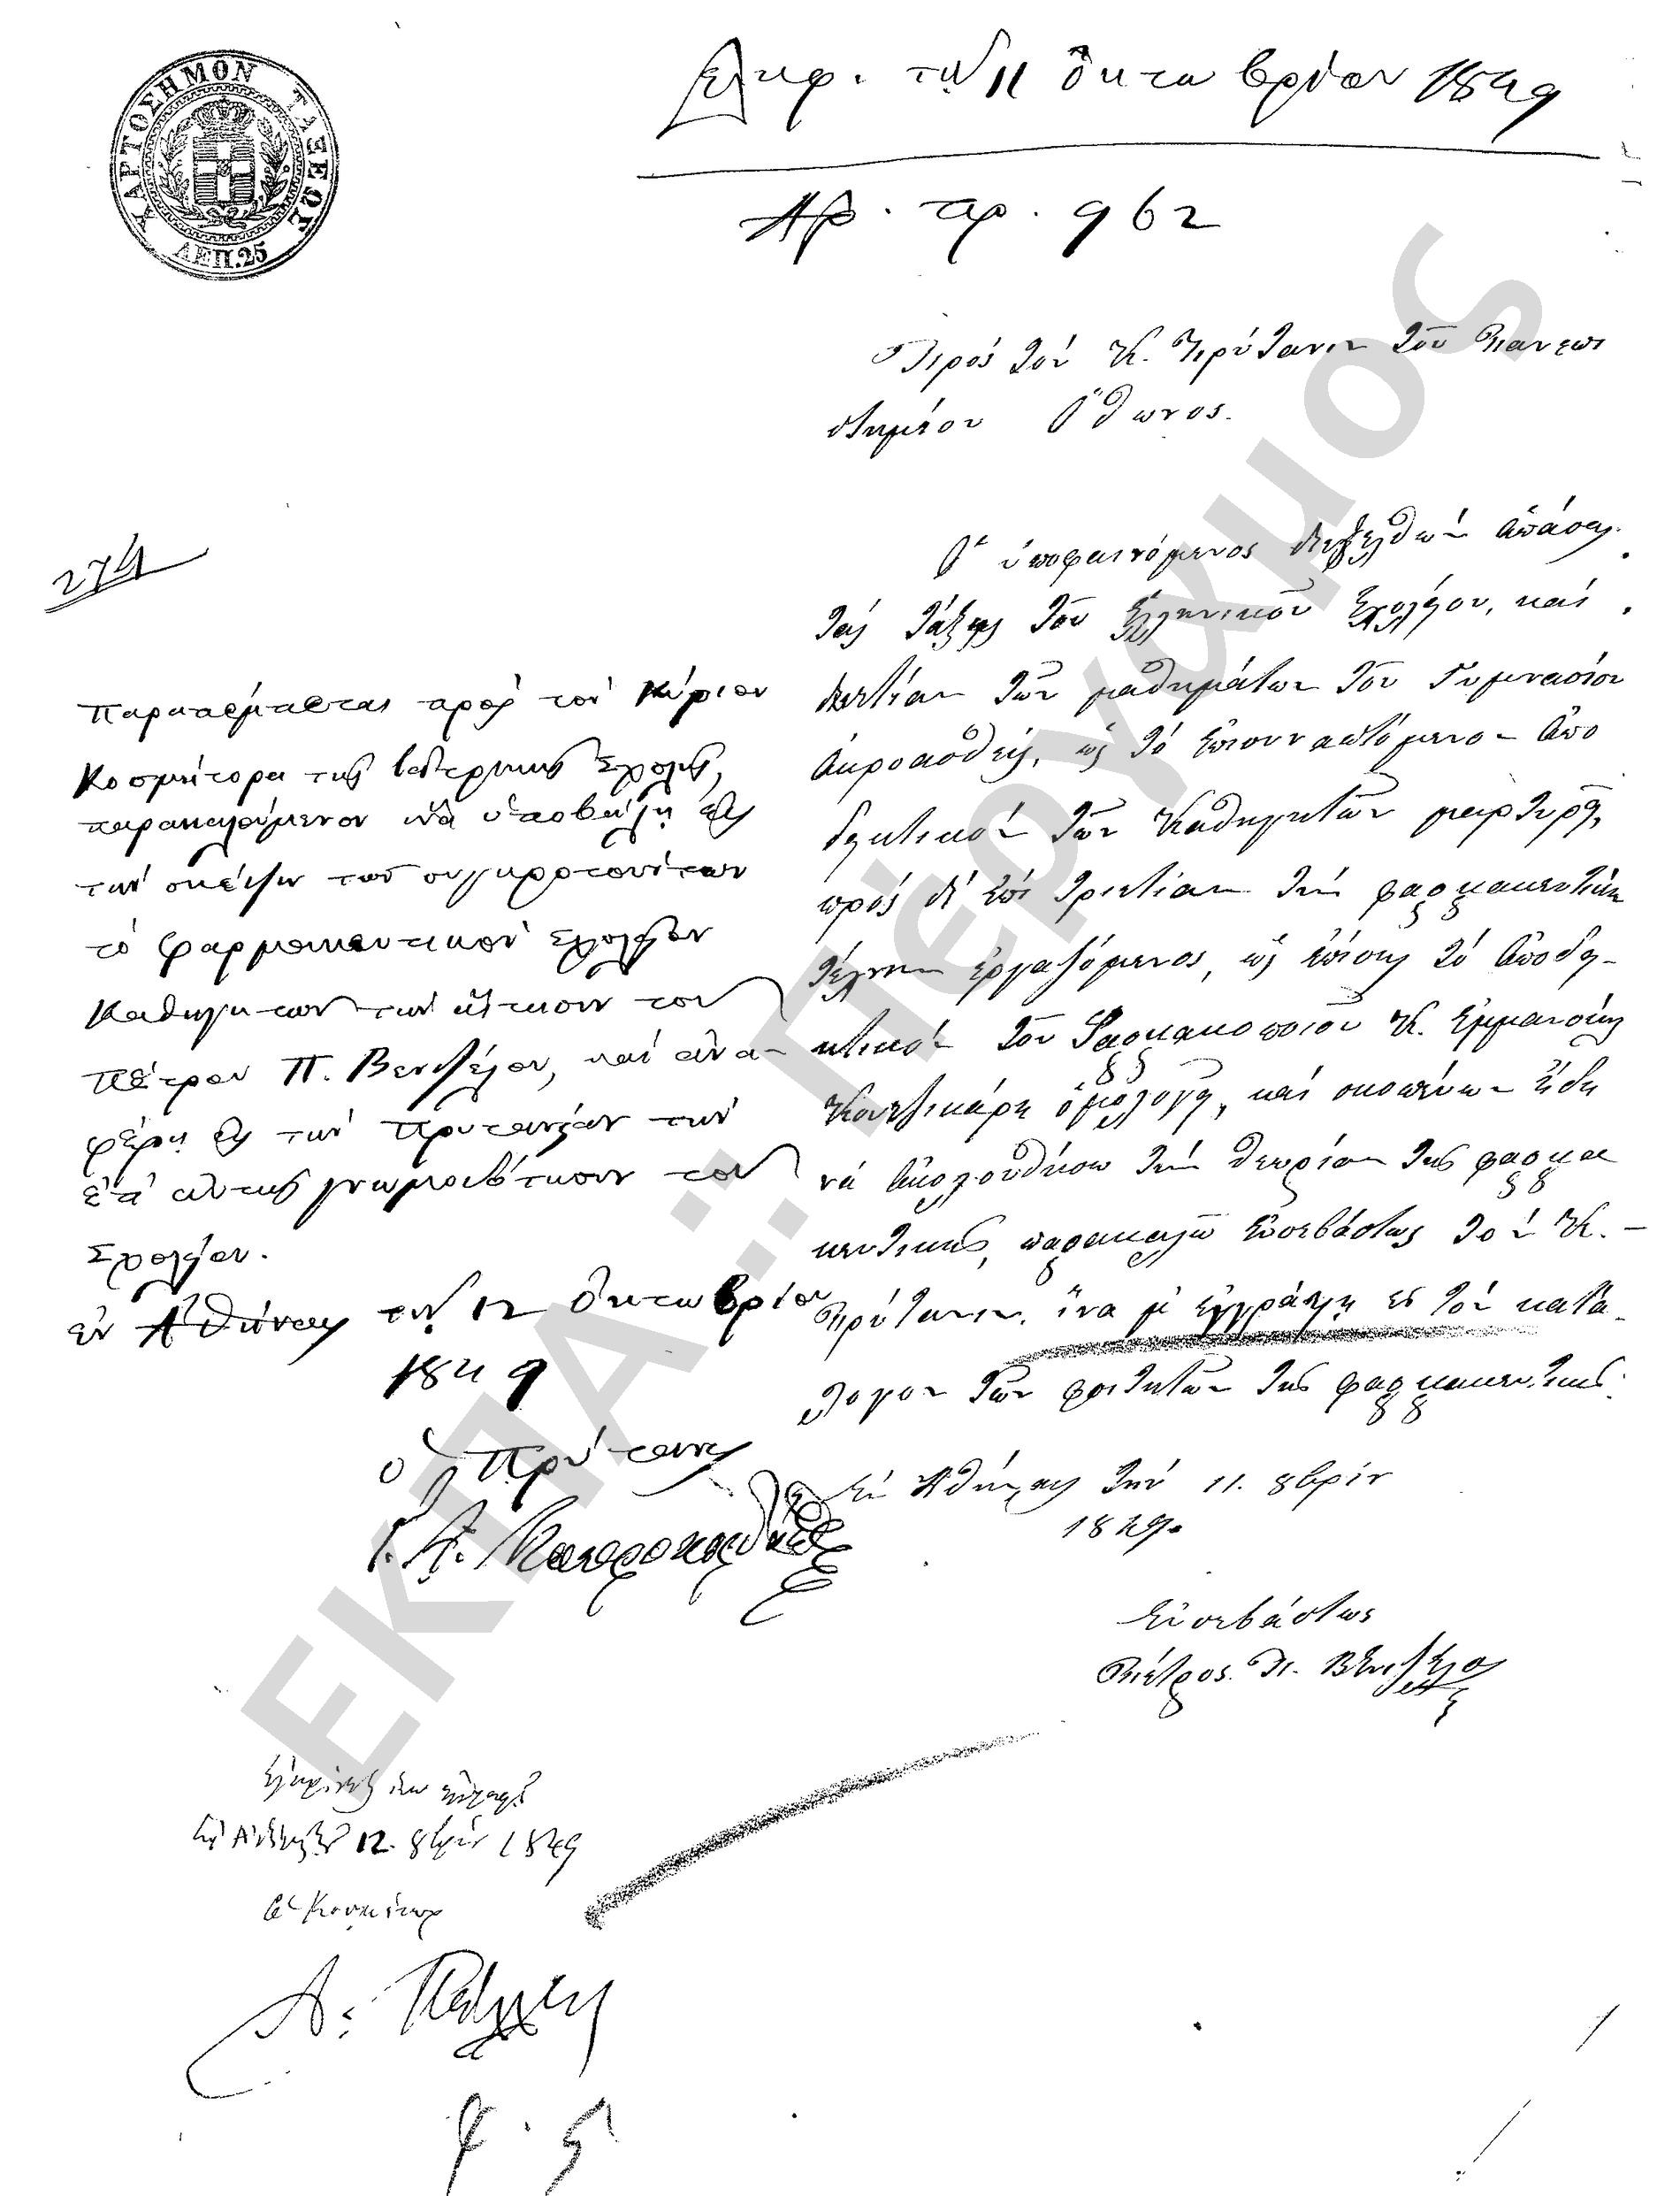 ΧΑΡΤΟΣΗΜΟΝ ΤΑΞΕΩΣ
ΛΕΠ. 25
Ἐλήφ. τὴν 11 ὀκτωβρίου 1849
Ἀρ. πρ. 962
Πρὸς τὸν Κ. Πρύτανιν τοῦ Πανεπι
στημίου Ὄθωνος.
274
Ὁ ὑποφαινόμενος διεξελθὼν ἁπάσας
τὰς τάξεις τοῦ Ἑλληνικοῦ Σχολείου, καὶ
διετίαν τῶν μαθημάτων τοῦ Γυμνασίου
ἀκροασθείς, ὡς τὸ ἐπισυναπτόμενον ἀπο
δεικτικὸν τῶν Καθηγητῶν μαρτυρεῖ,
πρὸς δὲ ἐπὶ τριετίαν τὴν φαρμακευτικὴν
τέχνην ἐργαζόμενος, ὡς ἐπίσης τὸ ἀποδει-
κτικὸν τοῦ Φαρμακοποιοῦ Κ. Ἐμμανουὴλ
ὁμολογεῖ, καὶ σκοπεύων ἤδη
νὰ ἀκολουθήσω τὴν θεωρίαν τῆς φαρμα
κευτικῆς, παρακαλῶ εὐσεβάστως τὸν Κ. -
Πρύτανιν, ἵνα μὲ ἐγγράψῃ εἰς τὸν κατά-
λογον τῶν φοιτητῶν τῆς φαρμακευτικῆς.
Ἐν Ἀθήναις τὴν 11. 8βρίου
1849.
Εὐσεβάστως
Πέτρος Π. Βενιζέλος
Παραπέμπεται πρὸς τὸν Κύριον
Κοσμήτορα τῆς Ἰατρικῆς Σχολῆς,
παρακαλούμενον νὰ ὑποβάλῃ εἰς
τὴν σκέψιν τῶν συγκροτούντων
τὸ φαρμακευτικὸν Σχολεῖον
Καθηγητῶν τὴν αἴτησιν τοῦ
Πέτρου Π. Βενιζέλου, καὶ ἀνα-
φέρῃ εἰς τὴν Πρυτανείαν τὴν
ἐπ' αὐτῆς γνωμοδότησιν τοῦ
Σχολείου.
ἐν Ἀθήναις τὴν 12 ὀκτωβρίου
1849
ὁ Πρύτανις
Ἐν Ἀθήναις 12. 8βρίου 1849
Ὁ Κοσμήτωρ
Α. Πάλλης
ΕΚΠΑ:: Πέργαμος